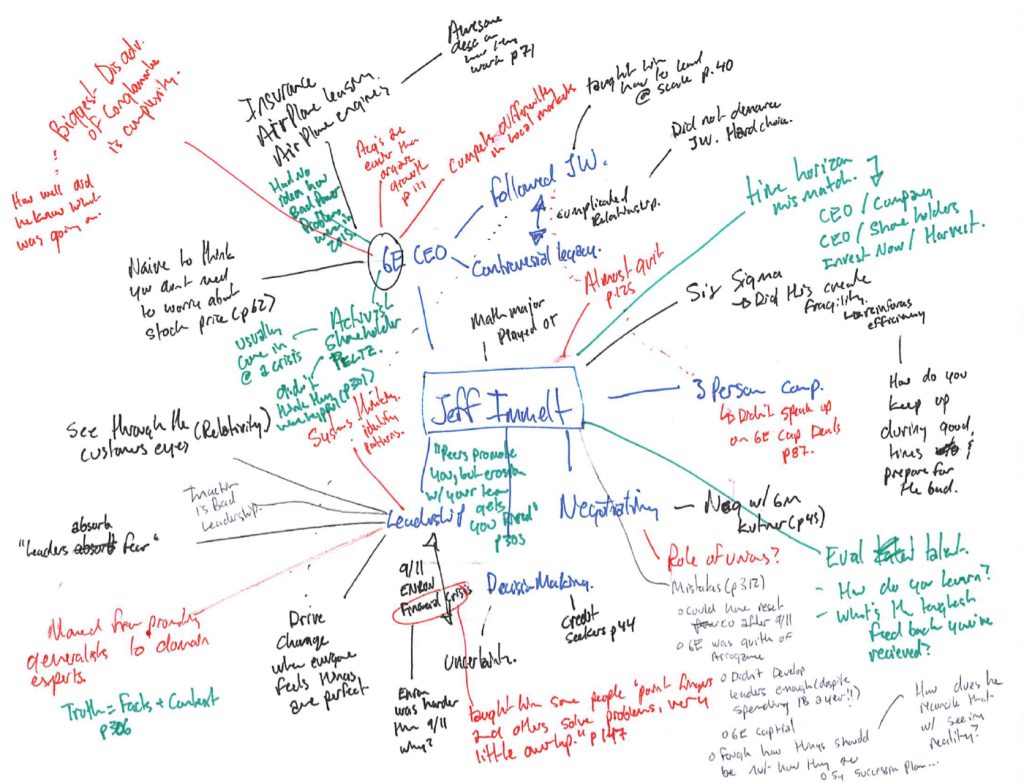 Biggest Disadv.
of Conglomorate
is complexity.
How well did
he know what
was going on.
Insurance
Airplane leasing
Airplane engines
Awesome
desc on
how they
work p71
Acq's are
easier than
organic
growth
p 111
Competes differently
in local markets
Had No
idea how
Bad Power
Problems
were in
2015.
GE CEO
Followed J.W.
taught him
how to lead
@ scale p.40
Did not denounce
J.W. Hard choice.
Complicated
Relationship.
Controversial legacy.
Naive to think
you don't need
to worry about
stock price (p62)
usually
come in
@ a crisis
Activist
Shareholder
PELTZ.
didn't
think they
were hyper (p301)
Math major
Played OT
Almost quit
p.125
time horizon
mismatch.
CEO / Company
CEO / Share holders
Invest Now / Harvest.
Six Sigma
Did this create
fragility.
reinforces
efficiency
How do you
keep up
during good
times &
prepare for
the bad.
Jeff Immelt
3 Person Comp.
Didn't speak up
on GE Cap Deals
p87.
See through the (Relativity)
customers eyes
Systems thinking
identify
patterns.
Inaction
is Bad
Leadership.
absorb
"Leaders absorb fear"
Leadership
"Peers promote
you, but erosion
w/ your team
gets
you fired"
p303
Negotiating
Neg w/ GM
Kutner (p45)
Role of unions?
Eval talent.
- How do you learn?
- What's the toughest
feedback you've
recieved?
Moved from promoting
generalists to domain
experts.
Truth = Facts + Context
p306
Drive
Change
when everyone
feels things
are perfect
9/11
ENRON
Financial Crisis
Enron
was harder
than 9/11
why?
Decision Making.
Uncertainty.
Credit
seekers p44
taught him some people "point fingers
and others solve problems, very
little overlap." p147
Mistakes (p312)
o Could have reset
co after 9/11
o GE was guilty of
Arrogance
o Didn't Develop
leaders enough (despite
spending 1B a year!!)
o GE capital
o Fough how things should
be not how they are
o Succession plan...
How does he
reconcile that
w/ seeing
reality?